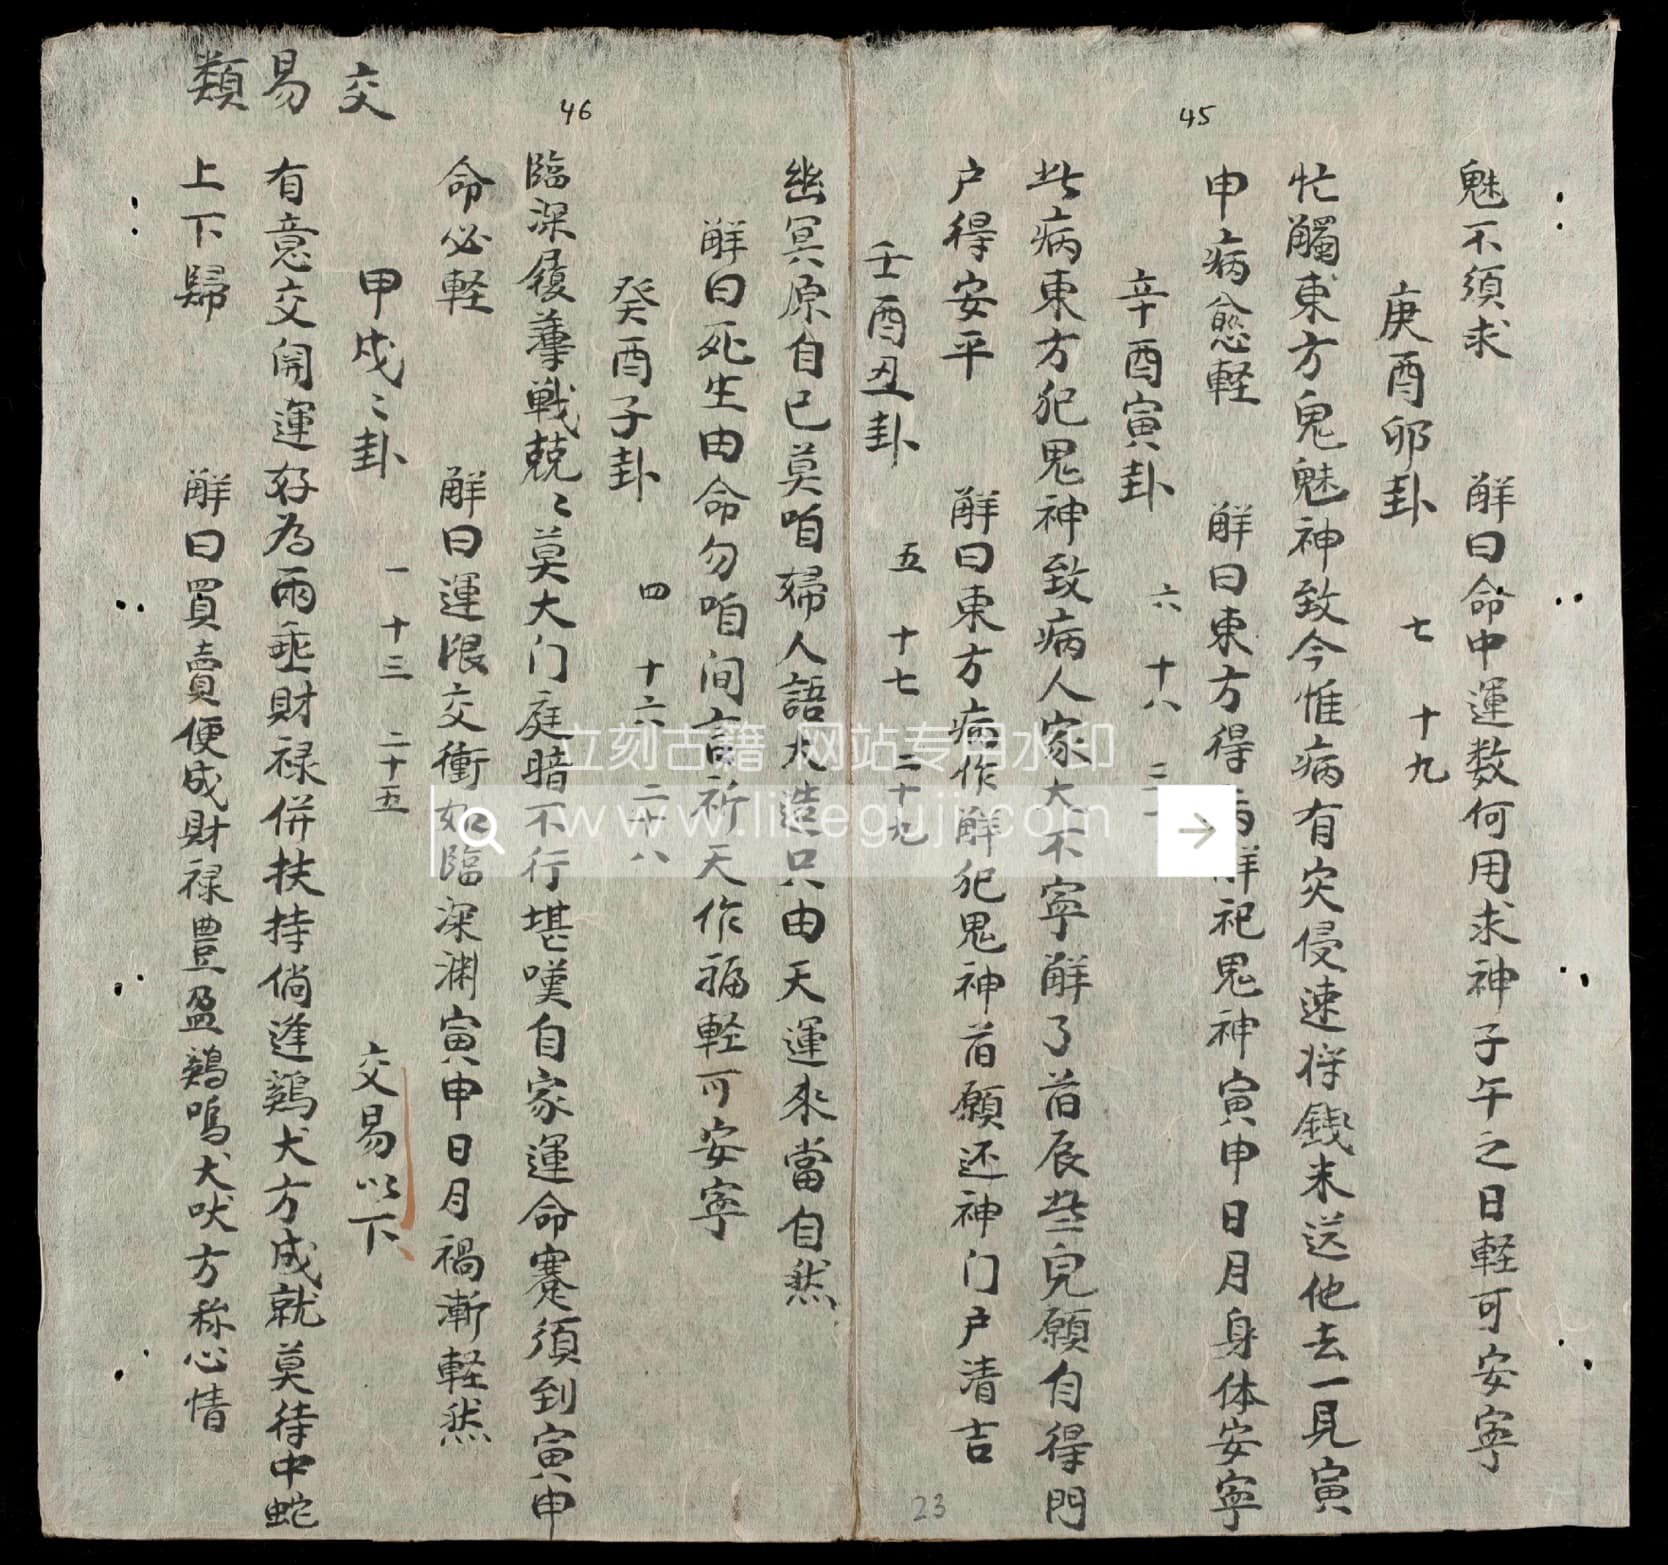 45
魅不須求　解曰命中運数何用求神子午之日軽可安寧
庚酉卯卦　七　十九
忙觸東方鬼魅神致今惟病有灾侵速将銭来送他去一見寅
申病愈軽　解曰東方得病祥祀鬼神寅申日月身体安寧
辛酉寅卦　六　十八
此病東方犯鬼神致病人家大不寧解了首辰些兒願自得門
户得安平　解曰東方病作解犯鬼神首願还神门户清吉
壬酉丑卦　五　十七　二十九
幽冥原自已莫咱婦人語大造只由天運來當自然
解曰死生由命勿咱间言祈天作福軽可安寧
46
癸酉子卦　四　十六　二十八
臨深履薄戦兢〻莫大门庭暗不行堪嘆自家運命蹇須到寅申
命必軽　解曰運限交衝如臨深渊寅申日月禍漸軽然
甲戌〻卦　一　十三　二十五　交易以下
交易類
有意交開運好為雨垂財禄併扶持倘逢鷄犬方成就莫待中蛇
上下歸　解曰買賣便成財禄豊盈鷄鳴犬吠方称心情
23
立刻古籍 网站专用水印
www.likeguji.com